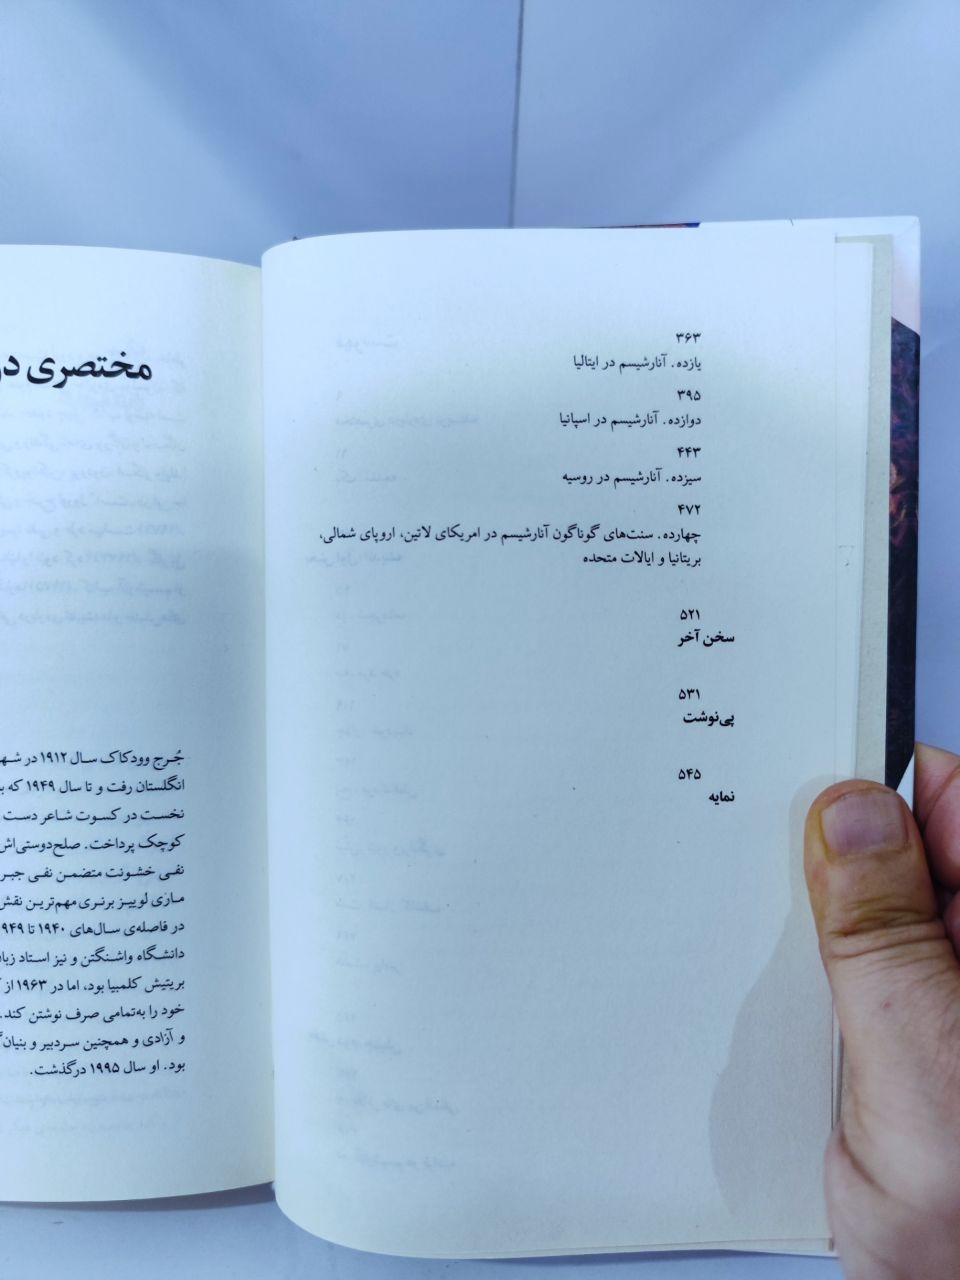 ۳۶۳
یازده. آنارشیسم در ایتالیا
۳۹۵
دوازده. آنارشیسم در اسپانیا
۴۴۳
سیزده. آنارشیسم در روسیه
۴۷۲
چهارده. سنت‌های گوناگون آنارشیسم در امریکای لاتین، اروپای شمالی،
بریتانیا و ایالات متحده
۵۲۱
سخن آخر
۵۳۱
پی‌نوشت
۵۴۵
نمایه
مختصری
جُرج وودکاک سال ۱۹۱۲ در
انگلستان رفت و تا سال ۱۹۴۹ که
نخست در کسوت شاعر دست
کوچک پرداخت. صلح‌دوستی‌اش
نفی خشونت متضمن نفی جبر
ماری لوییز برنری مهم‌ترین نقش
در فاصله‌ی سال‌های ۱۹۴۰ تا ۱۹۴۹
دانشگاه واشنگتن و نیز استاد
بریتیش کلمبیا بود، اما در ۱۹۶۳ از
خود را به‌تمامی صرف نوشتن کند.
و آزادی و همچنین سردبیر و
بود. او سال ۱۹۹۵ درگذشت.